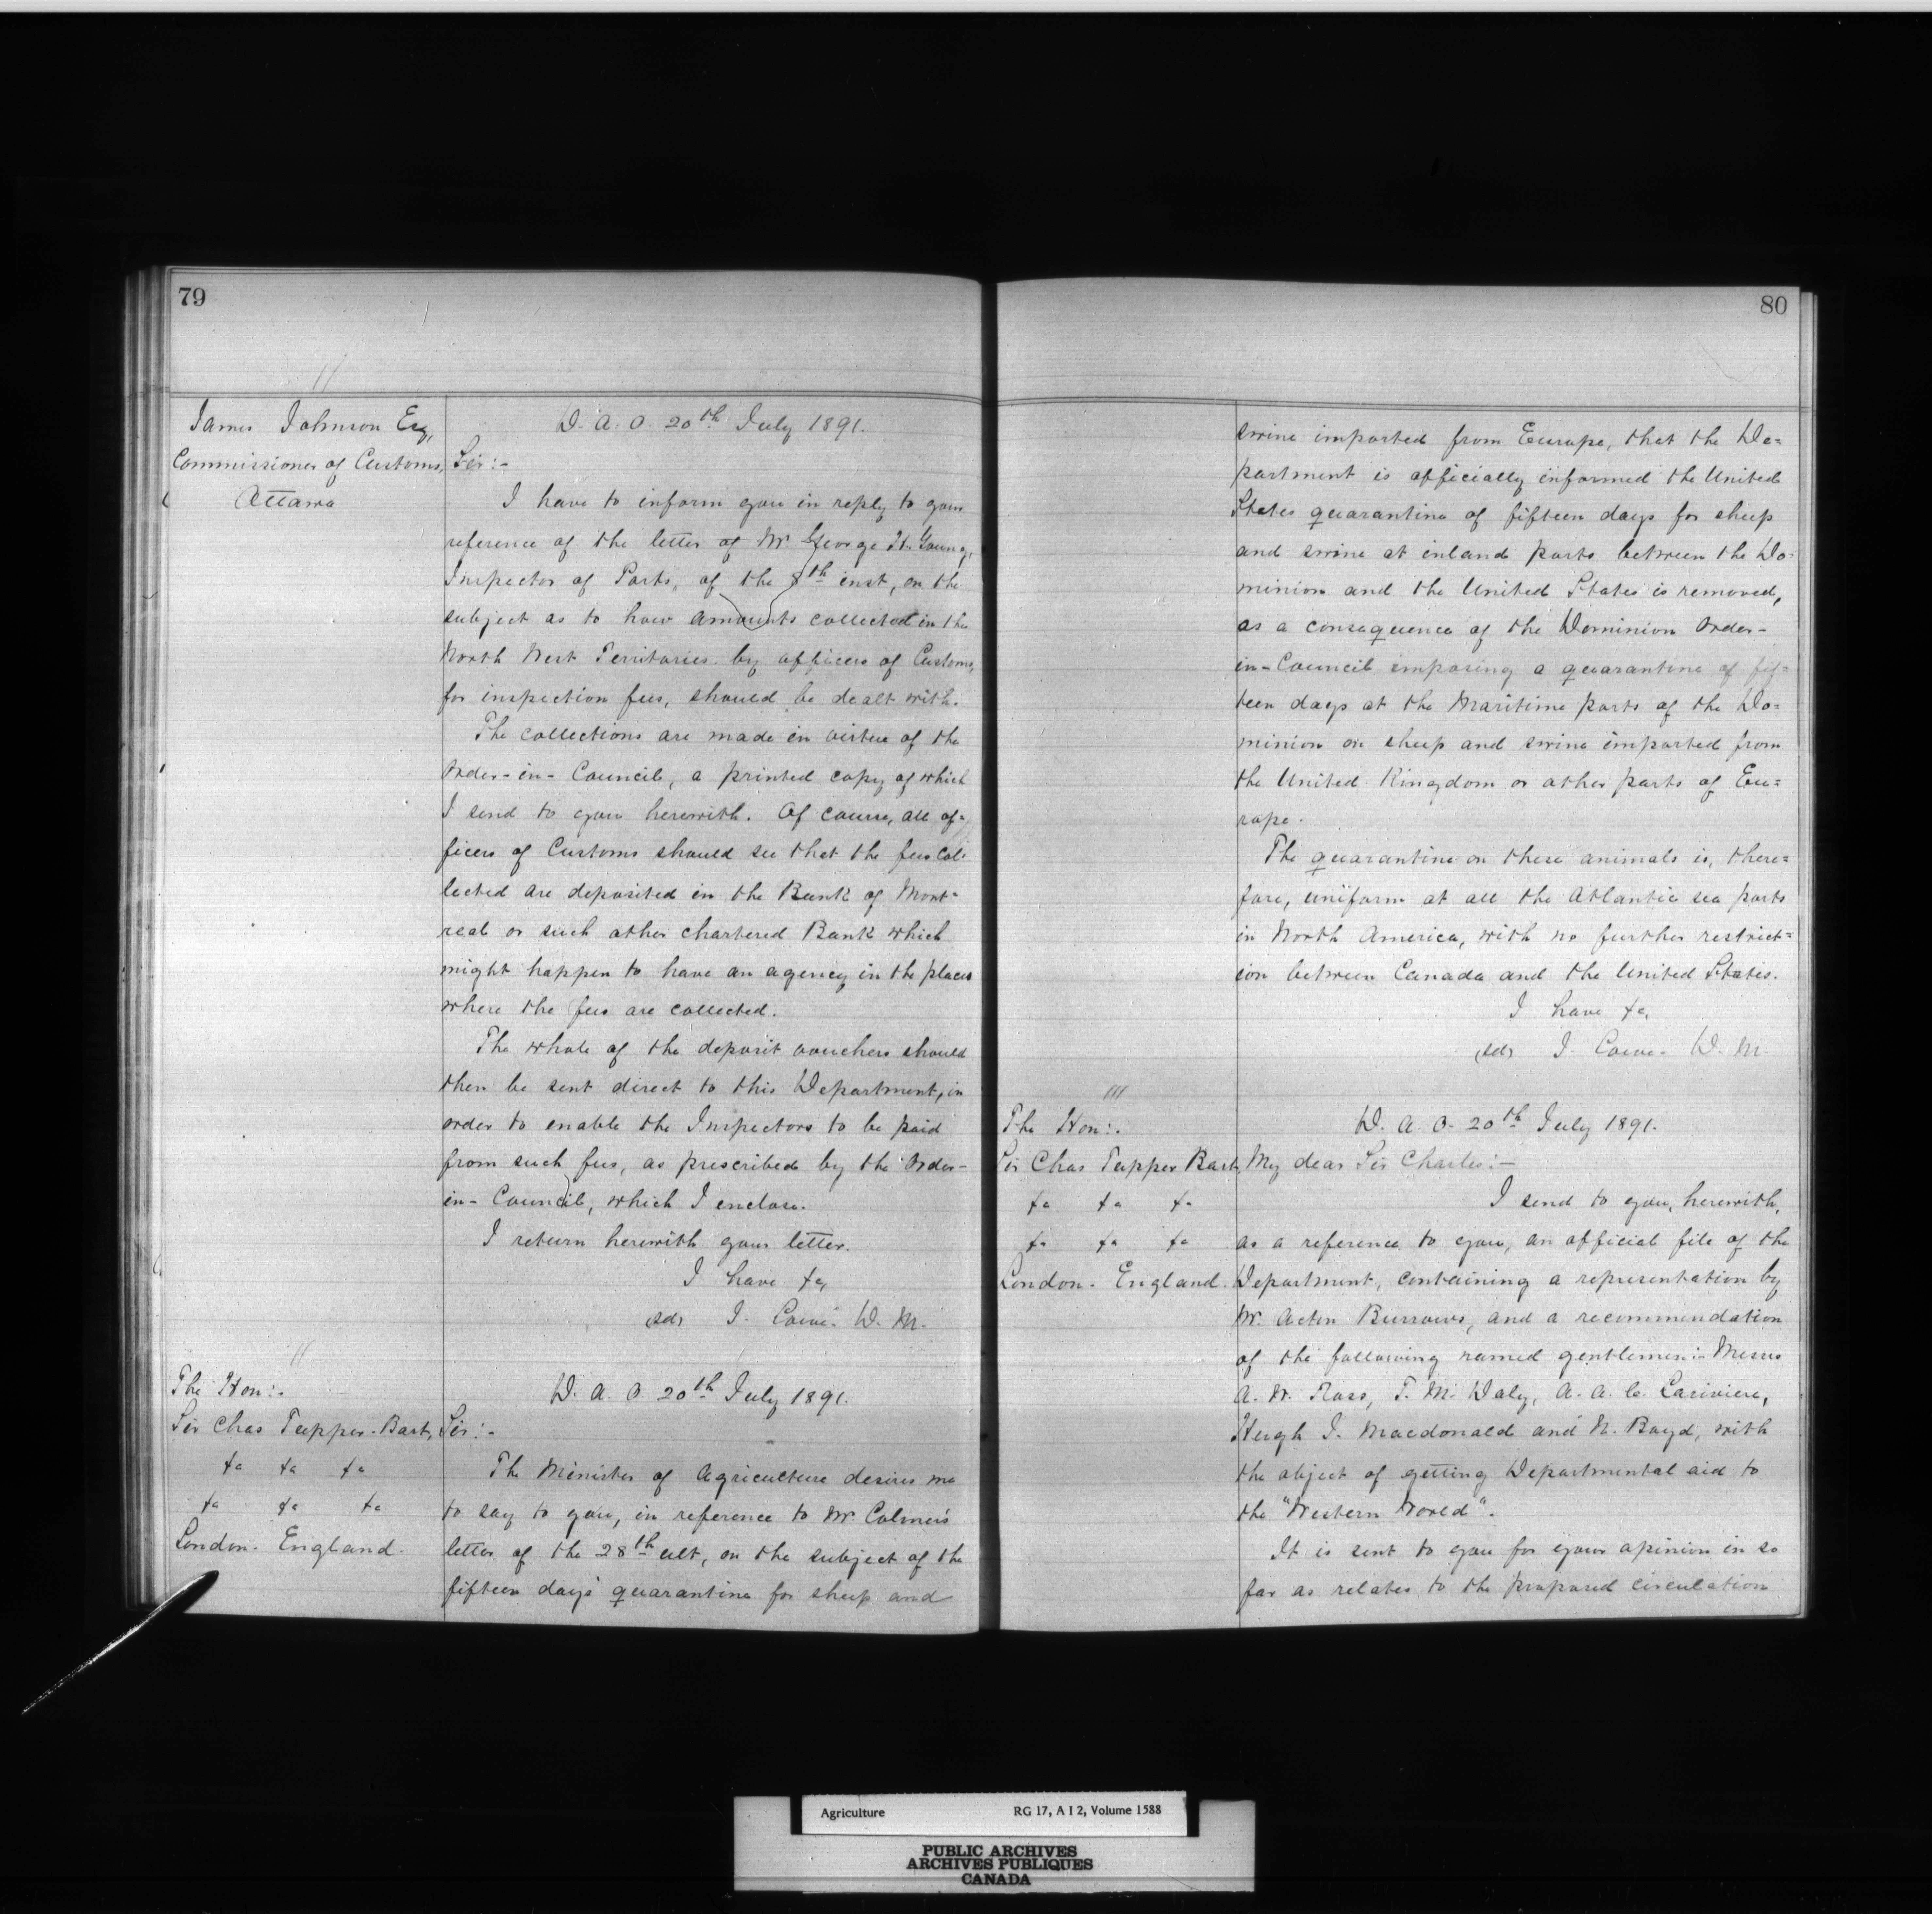 79
James Johnson Esq,
Commissioner of Customs,
Ottawa
D. A. O. 20th July 1891.
Sir:-
I have to inform you in reply to your
reference of the letter of Mr George H. Young,
Inspector of Ports, of the 8th inst, on the
subject as to how amounts collected in the
North West Territories by officers of Customs,
for inspection fees, should be dealt with.
The collections are made in virtue of the
Order-in-Council, a printed copy of which
I send to you herewith. Of course, all of=
ficers of Customs should see that the fees col=
lected are deposited in the Bank of Mont=
real or such other chartered Bank which
might happen to have an agency in the places
where the fees are collected.
The whole of the deposit vouchers should
then be sent direct to this Department, in
order to enable the Inspectors to be paid
from such fees, as prescribed by the Order-
in-Council, which I enclose.
I return herewith your letter.
I have &c,
(sd) J. Lowe. D. M.
The Hon:.
Sir Chas Tupper. Bart,
&c &c &c
&c &c &c
London. England.
D. A. O 20th July 1891.
Sir:-
The Minister of Agriculture desires me
to say to you, in reference to Mr Colmer's
letter of the 28th ult, on the subject of the
fifteen days' quarantine for sheep and
80
swine imported from Europe, that the De=
partment is officially informed the United
States quarantine of fifteen days for sheep
and swine at inland ports between the Do=
minion and the United States is removed,
as a consequence of the Dominion Order-
in-Council imposing a quarantine of fif=
teen days at the Maritime ports of the Do=
minion on sheep and swine imported from
the United Kingdom or other parts of Eu=
rope.
The quarantine on these animals is, there=
fore, uniform at all the Atlantic sea ports
in North America, with no further restrict=
ion between Canada and the United States.
I have &c,
(sd) J. Lowe. D. M.
The Hon:.
Sir Chas Tupper Bart,
&c &c &c
&c &c &c
London. England.
D. A. O. 20th July 1891.
My dear Sir Charles:-
I send to you, herewith,
as a reference to you, an official file of the
Department, containing a representation by
Mr. Acton Burrows, and a recommendation
of the following named gentlemen:- Messrs
A. W. Ross, T. M. Daly, A. A. C. Lariviere,
Hugh J. Macdonald and N. Boyd, with
the object of getting Departmental aid to
the "Western World".
It is sent to you for your opinion in so
far as relates to the proposed circulation
Agriculture RG 17, A I 2, Volume 1588
PUBLIC ARCHIVES
ARCHIVES PUBLIQUES
CANADA